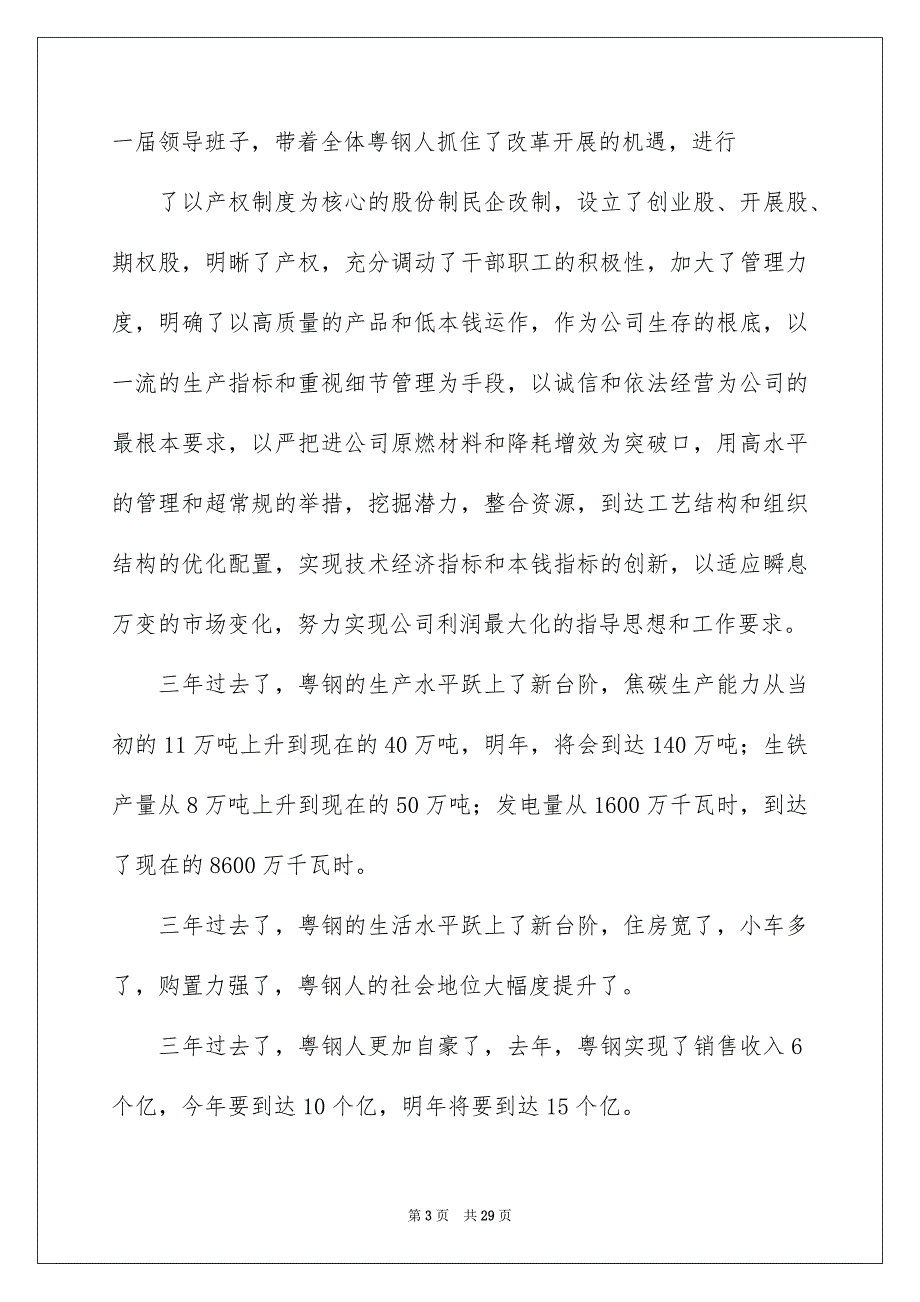 一届领导班子，带着全体粤钢人抓住了改革开展的机遇，进行
了以产权制度为核心的股份制民企改制，设立了创业股、开展股、
期权股，明晰了产权，充分调动了干部职工的积极性，加大了管理力
度，明确了以高质量的产品和低本钱运作，作为公司生存的根底，以
一流的生产指标和重视细节管理为手段，以诚信和依法经营为公司的
最根本要求，以严把进公司原燃材料和降耗增效为突破口，用高水平
的管理和超常规的举措，挖掘潜力，整合资源，到达工艺结构和组织
结构的优化配置，实现技术经济指标和本钱指标的创新，以适应瞬息
万变的市场变化，努力实现公司利润最大化的指导思想和工作要求。
三年过去了，粤钢的生产水平跃上了新台阶，焦碳生产能力从当
初的 11 万吨上升到现在的 40 万吨，明年，将会到达 140 万吨；生铁
产量从 8 万吨上升到现在的 50 万吨；发电量从 1600 万千瓦时，到达
了现在的 8600 万千瓦时。
三年过去了，粤钢的生活水平跃上了新台阶，住房宽了，小车多
了，购置力强了，粤钢人的社会地位大幅度提升了。
三年过去了，粤钢人更加自豪了，去年，粤钢实现了销售收入 6
个亿，今年要到达 10 个亿，明年将要到达 15 个亿。
第 3 页 共 29 页